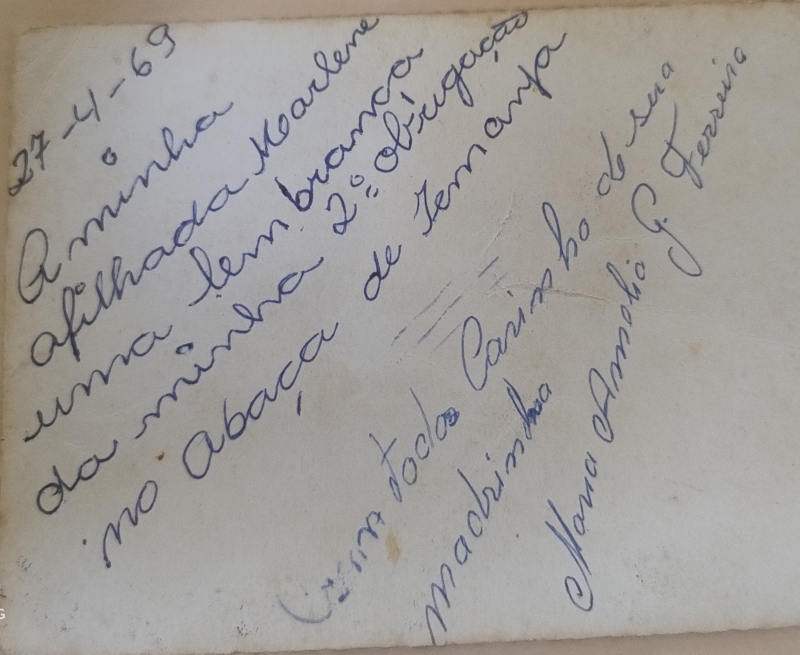 27-4-69
A minha
afilhada Marlene
uma lembrança
da minha 2º obrigação
no Abaça de Iemanja
Com todo Carinho de sua
madrinha
Maria Amelia G. Ferreira